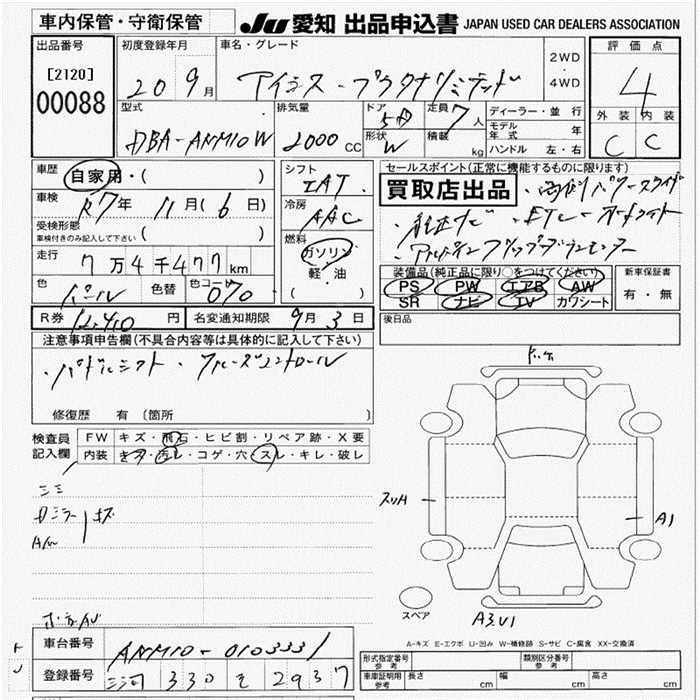 車内保管・守衛保管
JU 愛知 出品申込書 JAPAN USED CAR DEALERS ASSOCIATION
出品番号
[2120]
00088
初度登録年月
20 9月
車名・グレード
アイシス・プラタナリミテッド
2WD
・
4WD
評価点
4
外装 内装
C C
型式
DBA-ANM10W
排気量
2000 CC
ドア
5D
形状
W
定員
7人
積載 kg
ディーラー・並行
モデル年式 年
ハンドル 左・右
車歴
自家用・( )
車検
R7年 11月(6日)
受検形態
車検付きのみ記入して下さい ( )
走行
7万4千477km
色
パール
色替
色コード
070
シフト
IAT
冷房
AAC
燃料
ガソリン
軽・油
( )
セールスポイント(正常に機能するものに限ります)
買取店出品
・両側パワースライド
・純正ナビ ・ETC ・オートライト
装備品(純正品に限り○をつけてください)
PS PW エアB AW
SR ナビ TV カワシート
新車保証書
有・無
R券 12,410円
名変通知期限 9月3日
後日品
注意事項申告欄(不具合内容等は具体的に記入して下さい)
・パドルシフト ・クルーズコントロール
修復歴 有(箇所 )
検査員記入欄
FW キズ・飛石・ヒビ割・リペア跡・X要
内装 キズ・汚レ・コゲ・穴・スレ・キレ・破レ
ドミラーキズ
A/W
スリH
A1
スペア
A3U1
A-キズ E-エクボ U-凹み W-補修跡 S-サビ C-腐食 XX-交換済
車台番号
ANM10-0103331
登録番号
三河 330 そ 2937
形式指定番号 参考
類別区分番号 参考
車庫証明用 参考
長さ cm
幅 cm
高さ cm